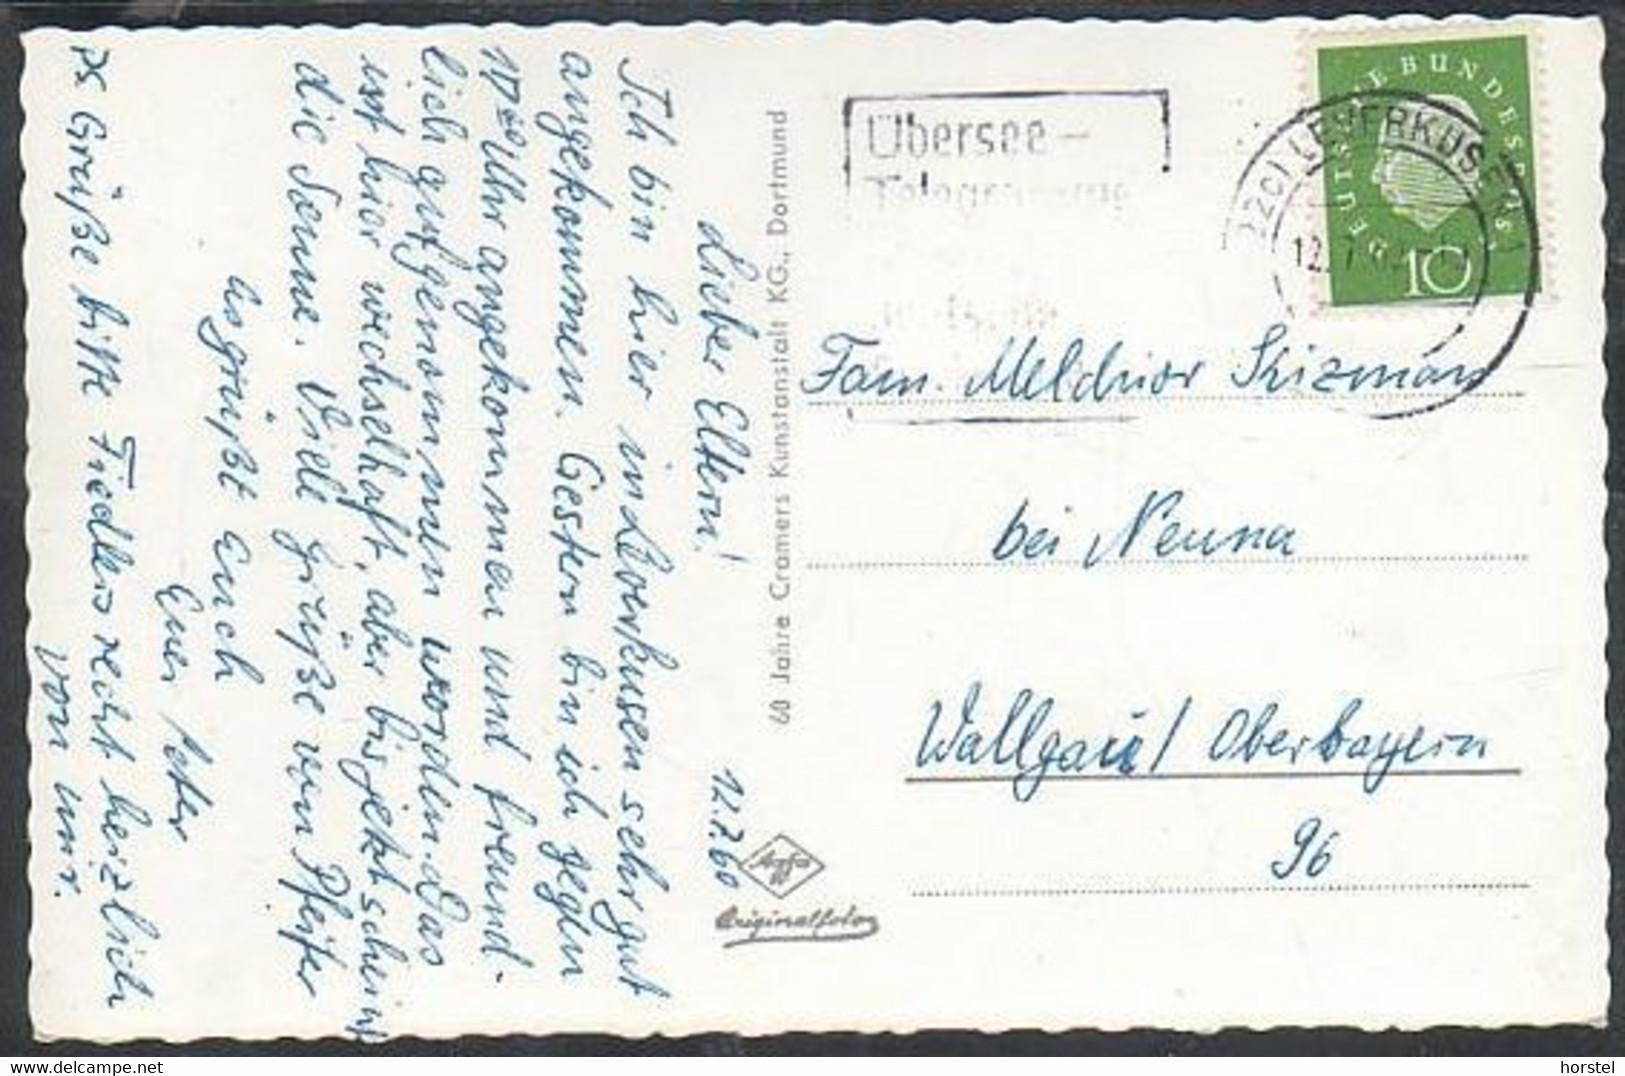 Lieber Eltern! 12.7.60
Ich bin hier in Leverkusen sehr gut
angekommen. Gestern bin ich gegen
17⁰⁰ Uhr angekommen und freund-
lich aufgenommen worden. Das
ist hier wechselhaft, aber bis jetzt scheint
die Sonne. Viele Grüße von Pfeifer
Es grüßt Euch
Euer Peter
PS Grüße bitte Fiedlers recht herzlich
von mir.
60 Jahre Cramers Kunstanstalt KG., Dortmund
Agfa
Originalfoto
Übersee-
DEUTSCHE BUNDESPOST
10
LEVERKUSEN
12. 7.
Fam. Melchior Skizman
bei Neuner
Wallgau / Oberbayern
96
horstel
delcampe.net